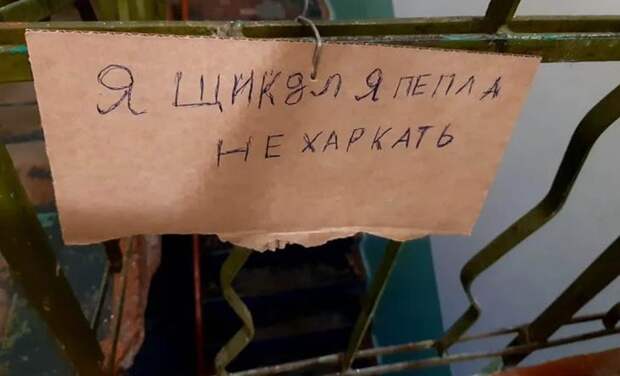 Я ЩИКДЛЯ ПЕПЛА
НЕ ХАРКАТЬ